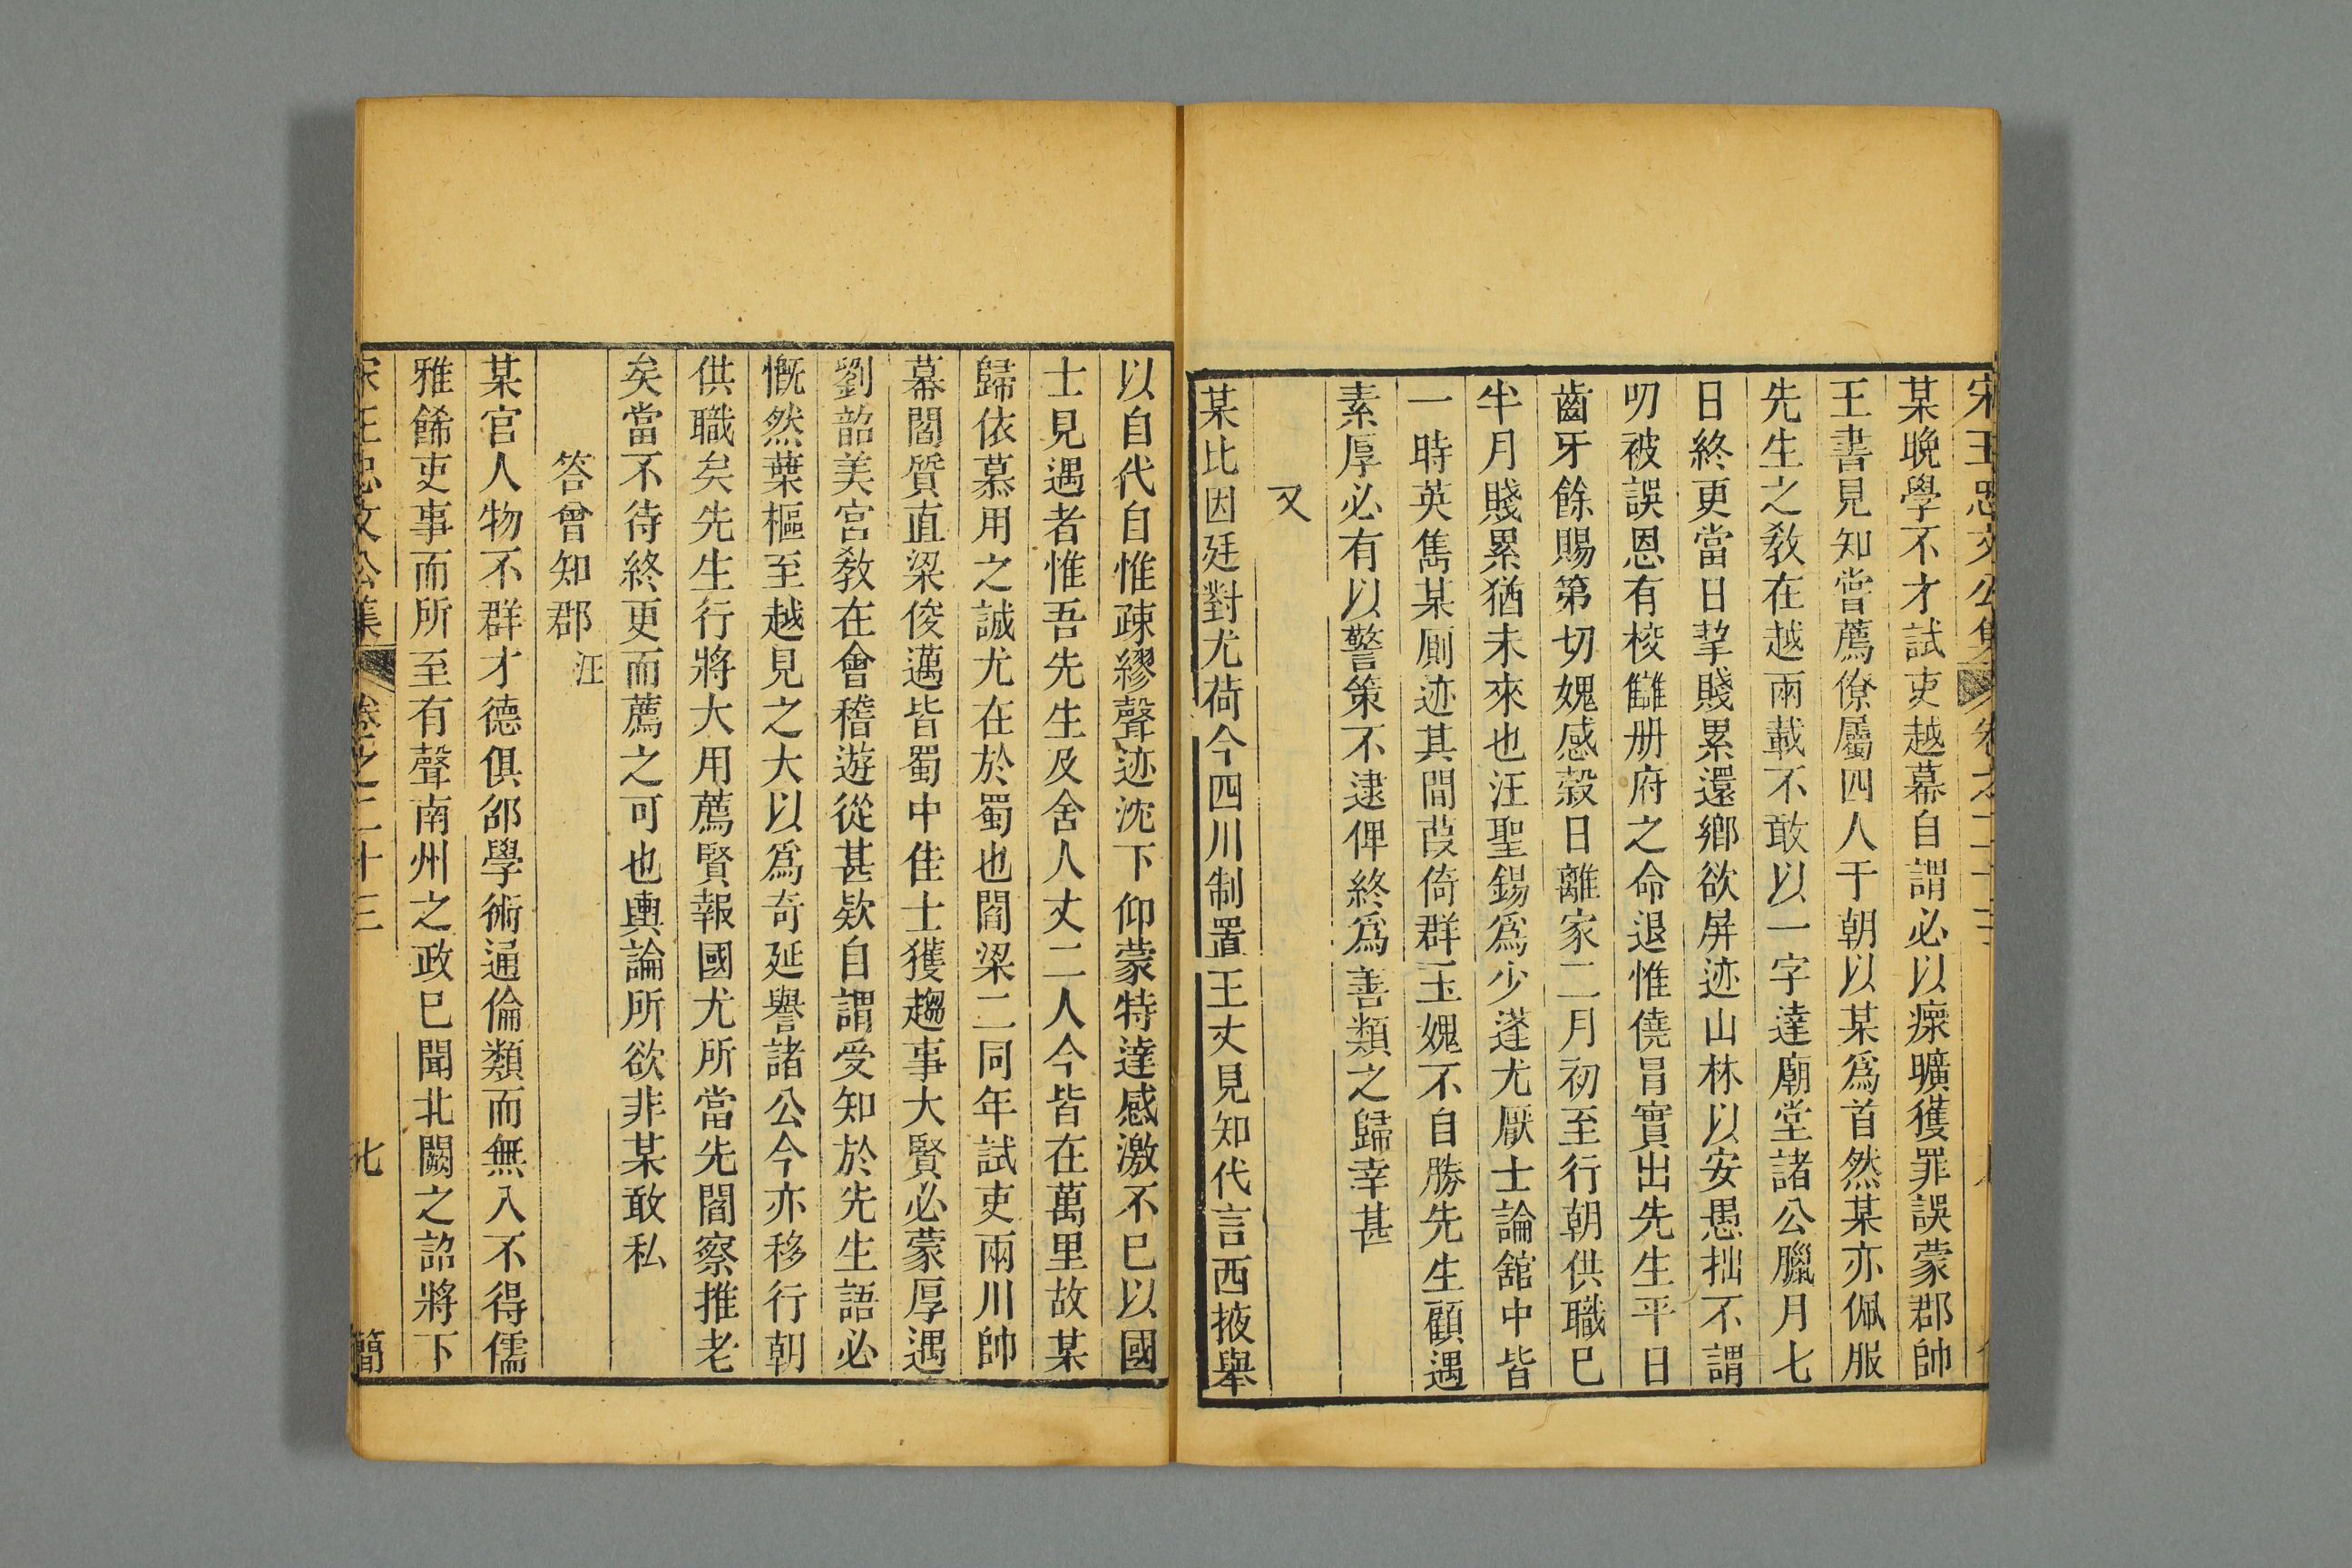 宋王忠文公集 卷之二十三
某晚學不才試吏越幕自謂必以瘝曠獲罪誤蒙郡帥
王書見知嘗薦僚屬四人于朝以某爲首然某亦佩服
先生之敎在越兩載不敢以一字達廟堂諸公臘月七
日終更當日挈賤累還鄉欲屏迹山林以安愚拙不謂
叨被誤恩有校讎册府之命退惟僥冒實出先生平日
齒牙餘賜第切媿感榖日離家二月初至行朝供職巳
半月賤累猶未來也汪聖錫爲少蓬尤厭士論舘中皆
一時英雋某厠迹其間葭倚群玉媿不自勝先生顧遇
素厚必有以警策不逮俾終爲善類之歸幸甚
又
某比因廷對尤荷今四川制置王丈見知代言西掖舉
以自代自惟疎繆聲迹沈下仰蒙特達感激不已以國
士見遇者惟吾先生及舍人丈二人今皆在萬里故某
歸依慕用之誠尤在於蜀也閻梁二同年試吏兩川帥
幕閻質直梁俊邁皆蜀中佳士獲趨事大賢必蒙厚遇
劉韶美宮敎在會稽遊從甚欵自謂受知於先生語必
慨然葉樞至越見之大以爲奇延譽諸公今亦移行朝
供職矣先生行將大用薦賢報國尤所當先閻察推老
矣當不待終更而薦之可也輿論所欲非某敢私
答曾知郡 汪
某官人物不群才德俱卲學術通倫類而無入不得儒
雅餙吏事而所至有聲南州之政巳聞北闕之詔將下
宋王忠文公集 卷之二十三 七 簡